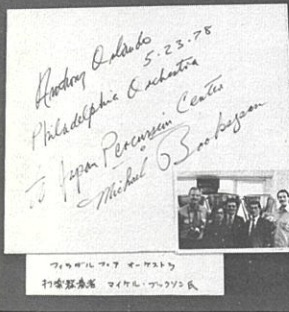 Anthony Orlando
5.23.78
Philadelphia Orchestra
To Japan Percussion Center
Michael Bookspan
フィラデルフィア オーケストラ
打楽器奏者 マイケル・ブックスン氏